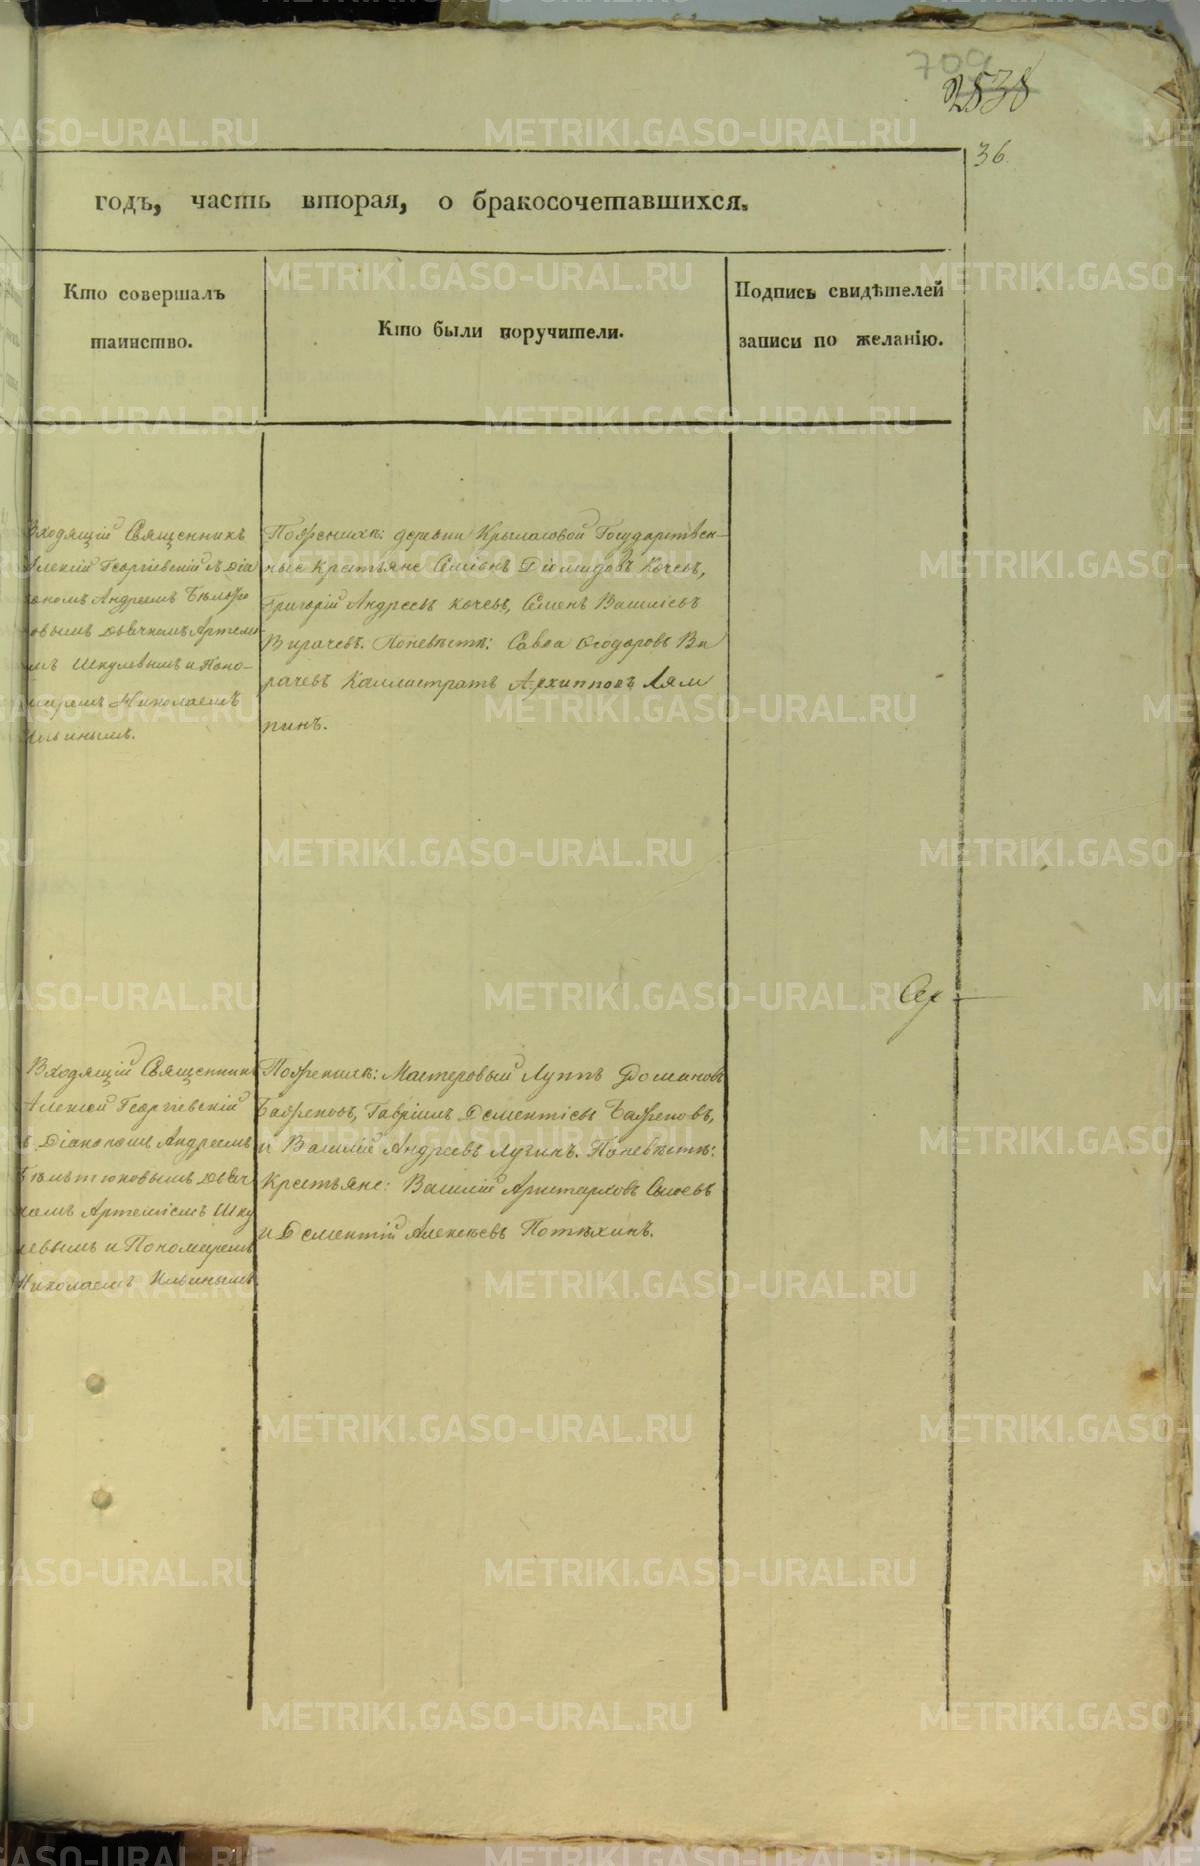 709
2838
36.
годъ, часть вторая, о бракосочетавшихся.
Кто совершалъ
таинство.
Кто были поручители.
Подпись свидѣтелей
записи по желанію.
Входящій Священникъ
Алексій Георгіевскій съ Діа
кономъ Андреемъ
овымъ дьячкомъ Артемі
емъ Шкулевымъ и Поно-
маремъ Николаемъ
Ильинымъ.
Пожених​ѣ: деревни Крыласовой Государствен-
ные крестьяне Симіонъ Діомидовъ Кочевъ,
Григорій Андреевъ Кочевъ, Семенъ Васильевъ
Вирачевъ. Поневѣстѣ: Савва Ѳеодоровъ Ви
рачевъ Каллистратъ Архипповъ Лям
пинъ.
Сер
Входящій Священникъ
Алексей Георгіевскій
съ Діакономъ Андреемъ
дьяч
комъ Артеміемъ Шку
левымъ и Пономаремъ
Николаемъ Ильинымъ.
Поженихѣ: Мастеровый Луппъ
Баженовъ, Гавріилъ Дементіевъ Баженовъ,
и Василій Андреевъ Лузинъ. Поневѣстѣ:
Крестьяне: Василій Аристарховъ Сысоевъ
и Дементій Алексѣевъ Потѣхинъ.
METRIKI.GASO-URAL.RU